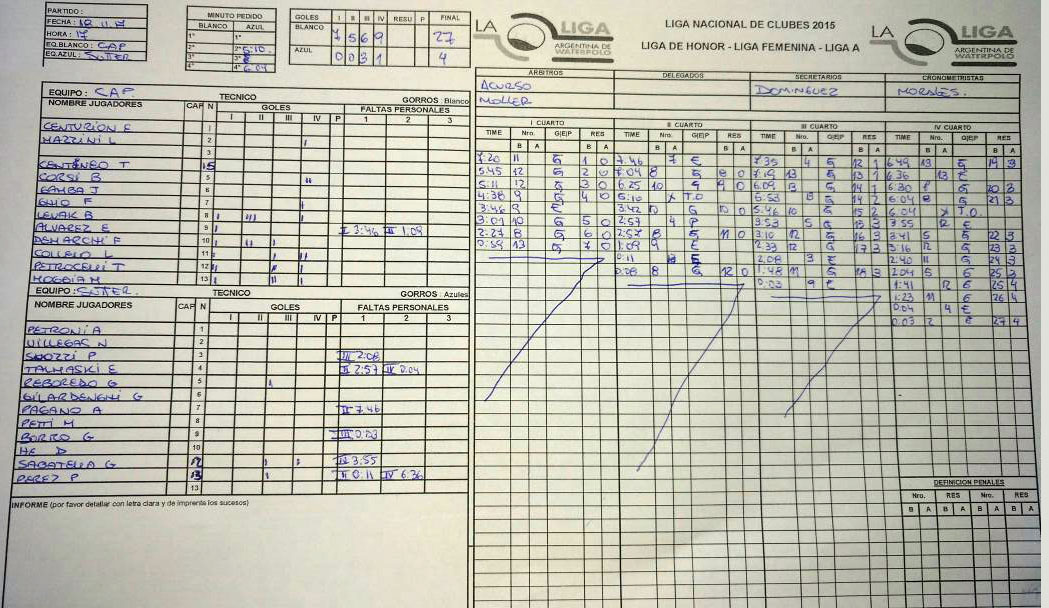 PARTIDO :
FECHA : 18.11.
HORA : 17
EQ.BLANCO : CAP
EQ.AZUL : SUTTER
MINUTO PEDIDO
BLANCO AZUL
1° 1°
2° 2° 5:10
3° 3°
4° 4° 6:04
GOLES I II III IV RESU P FINAL
BLANCO 7 5 6 9 27
AZUL 0 0 3 1 4
LA LIGA
ARGENTINA DE
WATERPOLO
LIGA NACIONAL DE CLUBES 2015
LIGA DE HONOR - LIGA FEMENINA - LIGA A
LA LIGA
ARGENTINA DE
WATERPOLO
ARBITROS DELEGADOS SECRETARIOS CRONOMETRISTAS
ACURSO DOMINGUEZ MORALES.
MOLLER
EQUIPO : CAP TECNICO GORROS : Blanco
NOMBRE JUGADORES CAP N GOLES FALTAS PERSONALES
I II III IV P 1 2 3
CENTURION F 1
MAZZINI L 2
3
CENTENEO T 15
CORSI B 5
GAMBA J 6
GHIO F 7
LEVAK B 8
ALVAREZ E 9 II 3:46 II 1:09
DEMARCHI F 10
COLLELO L 11
PETROCELLI T 12
MOGGIA M 13
EQUIPO : SUTTER. TECNICO GORROS : Azules
NOMBRE JUGADORES CAP N GOLES FALTAS PERSONALES
I II III IV P 1 2 3
PETRONI A 1
VILLEGAS N 2
SMOZZI P 3 III 2:08
TALMASKI E 4 II 2:57 IV 0:04
REBOREDO G 5
GILARDENGHI G 6
PAGANO A 7 II 7:46
PETTI M 8
BORRO G 9 III 0:03
HE D 10
SABATELLA G 12 IV 3:55
PEREZ P 13 II 0:11 IV 6:36
13
INFORME (por favor detallar con letra clara y de imprente los sucesos)
I CUARTO
TIME Nro. G|E|P RES
B A B A
7:20 11 G 1 0
5:45 12 G 2 0
5:11 12 G 3 0
4:38 9 G 4 0
3:46 9 E
3:01 10 G 5 0
2:27 8 G 6 0
0:59 13 G 7 0
II CUARTO
TIME Nro. G|E|P RES
B A B A
7:46 7 E
7:04 8 G 8 0
6:25 10 G 9 0
5:10 X T.O
3:42 10 G 10 0
2:57 4 P
2:57 8 G 11 0
1:09 9 E
0:11 13 E
0:08 8 G 12 0
III CUARTO
TIME Nro. G|E|P RES
B A B A
7:35 4 G 12 1
7:19 13 G 13 1
6:09 13 G 14 1
5:53 G 14 2
5:46 10 G 15 2
3:53 5 G 15 3
3:10 12 G 16 3
2:33 12 G 17 3
2:08 3 E
1:48 11 G 18 3
0:03 9 E
IV CUARTO
TIME Nro. G|E|P RES
B A B A
6:49 13 G 19 3
6:36 13 E
6:30 8 G 20 3
6:04 8 G 21 3
6:04 X T.O.
3:55 12 E
3:41 5 G 22 3
3:16 12 G 23 3
2:40 11 G 24 3
2:04 5 G 25 3
1:41 12 G 25 4
1:23 11 G 26 4
0:04 4 E
0:03 2 27 4
DEFINICION PENALES
Nro. RES Nro. RES
B A B A B A B A